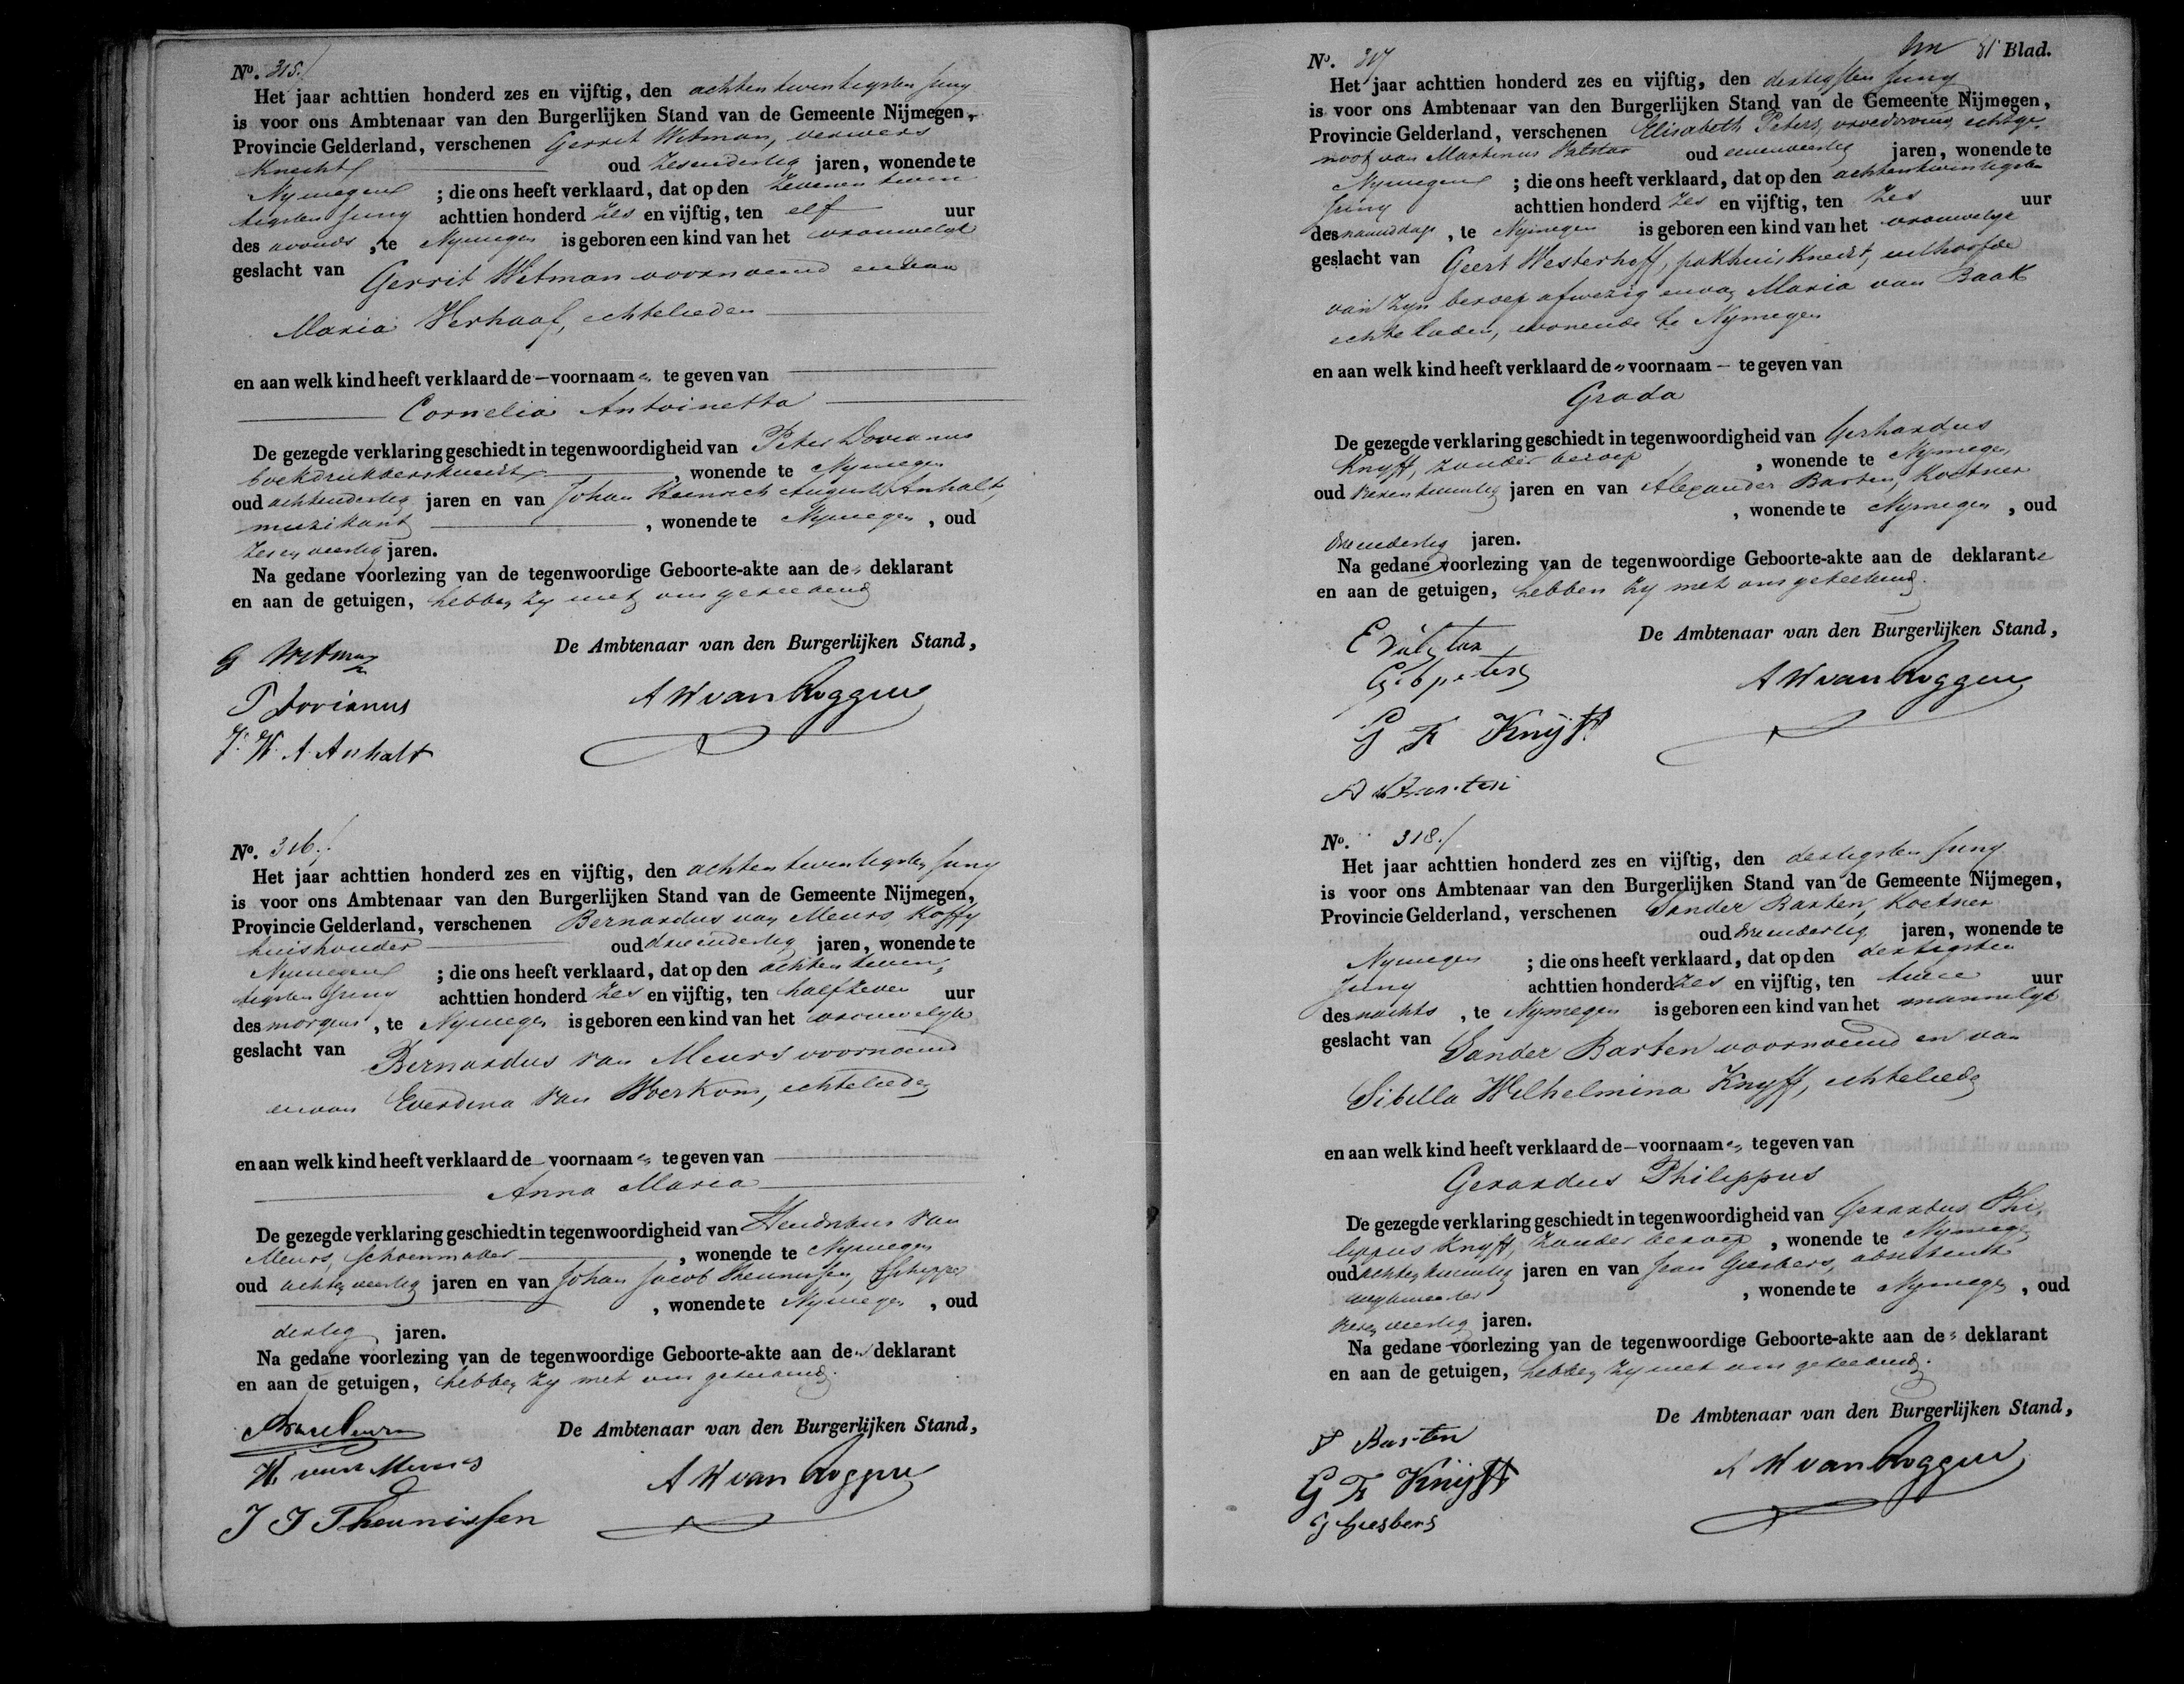 No. 315.
Het jaar achttien honderd zes en vijftig, den achtentwintigsten Juny
is voor ons Ambtenaar van den Burgerlijken Stand van de Gemeente Nijmegen,
Provincie Gelderland, verschenen Gerrit Witman, ververs
Knecht oud zesendertig jaren, wonende te
Nymegen ; die ons heeft verklaard, dat op den zevenentwin
tigsten Juny achttien honderd zes en vijftig, ten elf uur
des avonds , te Nymegen is geboren een kind van het vrouwelyk
geslacht van Gerrit Witman voornoemd en van
Maria Verhaaf, echtelieden
en aan welk kind heeft verklaard de — voornaamen te geven van
Cornelia Antoinetta
De gezegde verklaring geschiedt in tegenwoordigheid van Peter Dorianus
boekdrukkersknecht , wonende te Nymegen
oud achtendertig jaren en van Johan Heinrich August Anhalt,
muzikant , wonende te Nymegen , oud
zesenveertig jaren.
Na gedane voorlezing van de tegenwoordige Geboorte-akte aan den deklarant
en aan de getuigen, hebben zy met ons geteekend
De Ambtenaar van den Burgerlijken Stand,
G Witman
P Dorianus
J. H. A. Anhalt
A W van Roggen
No. 316.
Het jaar achttien honderd zes en vijftig, den achtentwintigsten Juny
is voor ons Ambtenaar van den Burgerlijken Stand van de Gemeente Nijmegen,
Provincie Gelderland, verschenen Bernardus van Meurs, Koffy
huishouder oud drieendertig jaren, wonende te
Nymegen ; die ons heeft verklaard, dat op den achtentwin,
tigsten Juny achttien honderd zes en vijftig, ten half zeven uur
des morgens , te Nymegen is geboren een kind van het vrouwelyk
geslacht van Bernardus van Meurs voornoemd
en van Everdina van Woerkom, echtelieden
en aan welk kind heeft verklaard de — voornaamen te geven van
Anna Maria
De gezegde verklaring geschiedt in tegenwoordigheid van Hendrikus van
Meurs, schoenmaker , wonende te Nymegen
oud achtenveertig jaren en van Johan Jacob Theunissen, schipper
, wonende te Nymegen , oud
dertig jaren.
Na gedane voorlezing van de tegenwoordige Geboorte-akte aan den deklarant
en aan de getuigen, hebben zy met ons geteekend.
De Ambtenaar van den Burgerlijken Stand,
H. van Meurs
J J Theunissen
A W van Roggen
81 Blad.
No. 317
Het jaar achttien honderd zes en vijftig, den dertigsten Juny
is voor ons Ambtenaar van den Burgerlijken Stand van de Gemeente Nijmegen,
Provincie Gelderland, verschenen Elisabeth Peters, vroedvrouw, echtge-
noot van Martinus oud eenenveertig jaren, wonende te
Nymegen ; die ons heeft verklaard, dat op den achtentwintigsten
Juny achttien honderd zes en vijftig, ten zes uur
des namiddags , te Nymegen is geboren een kind van het vrouwelyk
geslacht van Geert Westerhoff, pakhuisknecht, uithoofde
van zyn beroep afwezig en van Maria van Baak
echtelieden, wonende te Nymegen
en aan welk kind heeft verklaard den voornaam — te geven van
Grada
De gezegde verklaring geschiedt in tegenwoordigheid van Gerhardus
Knyff, zonder beroep , wonende te Nymegen
oud jaren en van Alexander Barten, Koetsier
, wonende te Nymegen , oud
drieendertig jaren.
Na gedane voorlezing van de tegenwoordige Geboorte-akte aan de deklarante
en aan de getuigen, hebben zy met ons geteekend.
De Ambtenaar van den Burgerlijken Stand,
Geb peters
G F Knijff
A W van Roggen
No. 318.
Het jaar achttien honderd zes en vijftig, den dertigsten Juny
is voor ons Ambtenaar van den Burgerlijken Stand van de Gemeente Nijmegen,
Provincie Gelderland, verschenen Sander Barten, Koetsier
oud drieendertig jaren, wonende te
Nymegen ; die ons heeft verklaard, dat op den dertigsten
Juny achttien honderd zes en vijftig, ten twee uur
des nachts , te Nymegen is geboren een kind van het mannelyk
geslacht van Sander Barten voornoemd en van
Sibilla Wilhelmina Knyff, echtelieden
en aan welk kind heeft verklaard de — voornaamen te geven van
Gerardus Philippus
De gezegde verklaring geschiedt in tegenwoordigheid van Gerardus Phi,
lippus Knyff, zonder beroep , wonende te Nymegen
oud achtentwintig jaren en van Jean Giesbers,
, wonende te Nymegen , oud
jaren.
Na gedane voorlezing van de tegenwoordige Geboorte-akte aan den deklarant
en aan de getuigen, hebben zy met ons geteekend.
De Ambtenaar van den Burgerlijken Stand,
S Barten
G F Knijff
J Giesbers
A W van Roggen